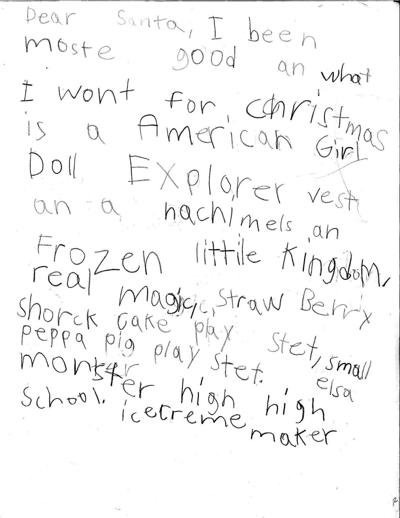 Dear Santa, I been
moste good an what
I wont for, christmas
is a American Girl
Doll Explorer vest
an a hachimels an
Frozen little Kingdom,
real magic, Straw Berry
shorck cake play stet, small
peppa pig play stet. elsa
monster high high
school. icecreme maker